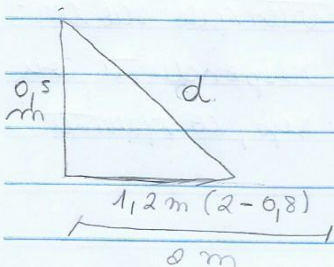 0,5
m
d
1,2 m (2-0,8)
2 m